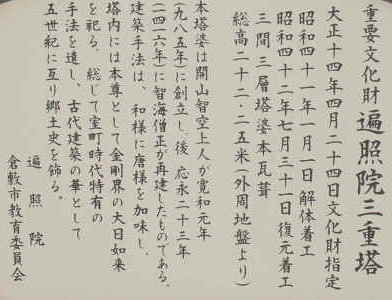 重要文化財遍照院三重塔
大正十四年四月二十四日文化財指定
昭和四十一年一月一日 解体着工
昭和四十二年七月三十一日復元着工
三間三層塔婆本瓦葺
総高二十二・二五米(外周地盤より)
本塔婆は開山智空上人が寛和元年
(九八五年)に創立し、後、応永二十三年
(一四一六年)に智海僧正が再建したものである。
建築手法は、和様に唐様を加味し、
塔内には本尊として金剛界の大日如来
を祀る。総じて室町時代特有の
手法を遺し、古代建築の華として
五世紀に亙り郷土史を飾る。
遍照院
倉敷市教育委員会